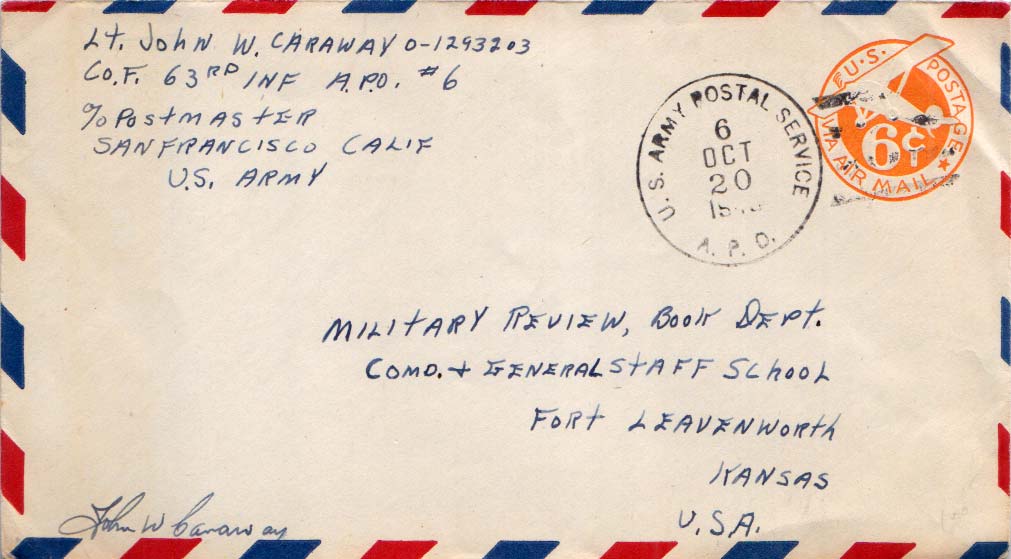 Lt. John W. Caraway O-1293203
Co.F. 63RD INF A.P.O. #6
c/o Postmaster
San Francisco Calif
U.S. Army
U.S. ARMY POSTAL SERVICE
6
OCT
20
A.P.O.
U.S. POSTAGE
6¢
VIA AIR MAIL
Military Review, Book Dept.
Comd. + General Staff School
Fort Leavenworth
Kansas
U.S.A.
John W Caraway